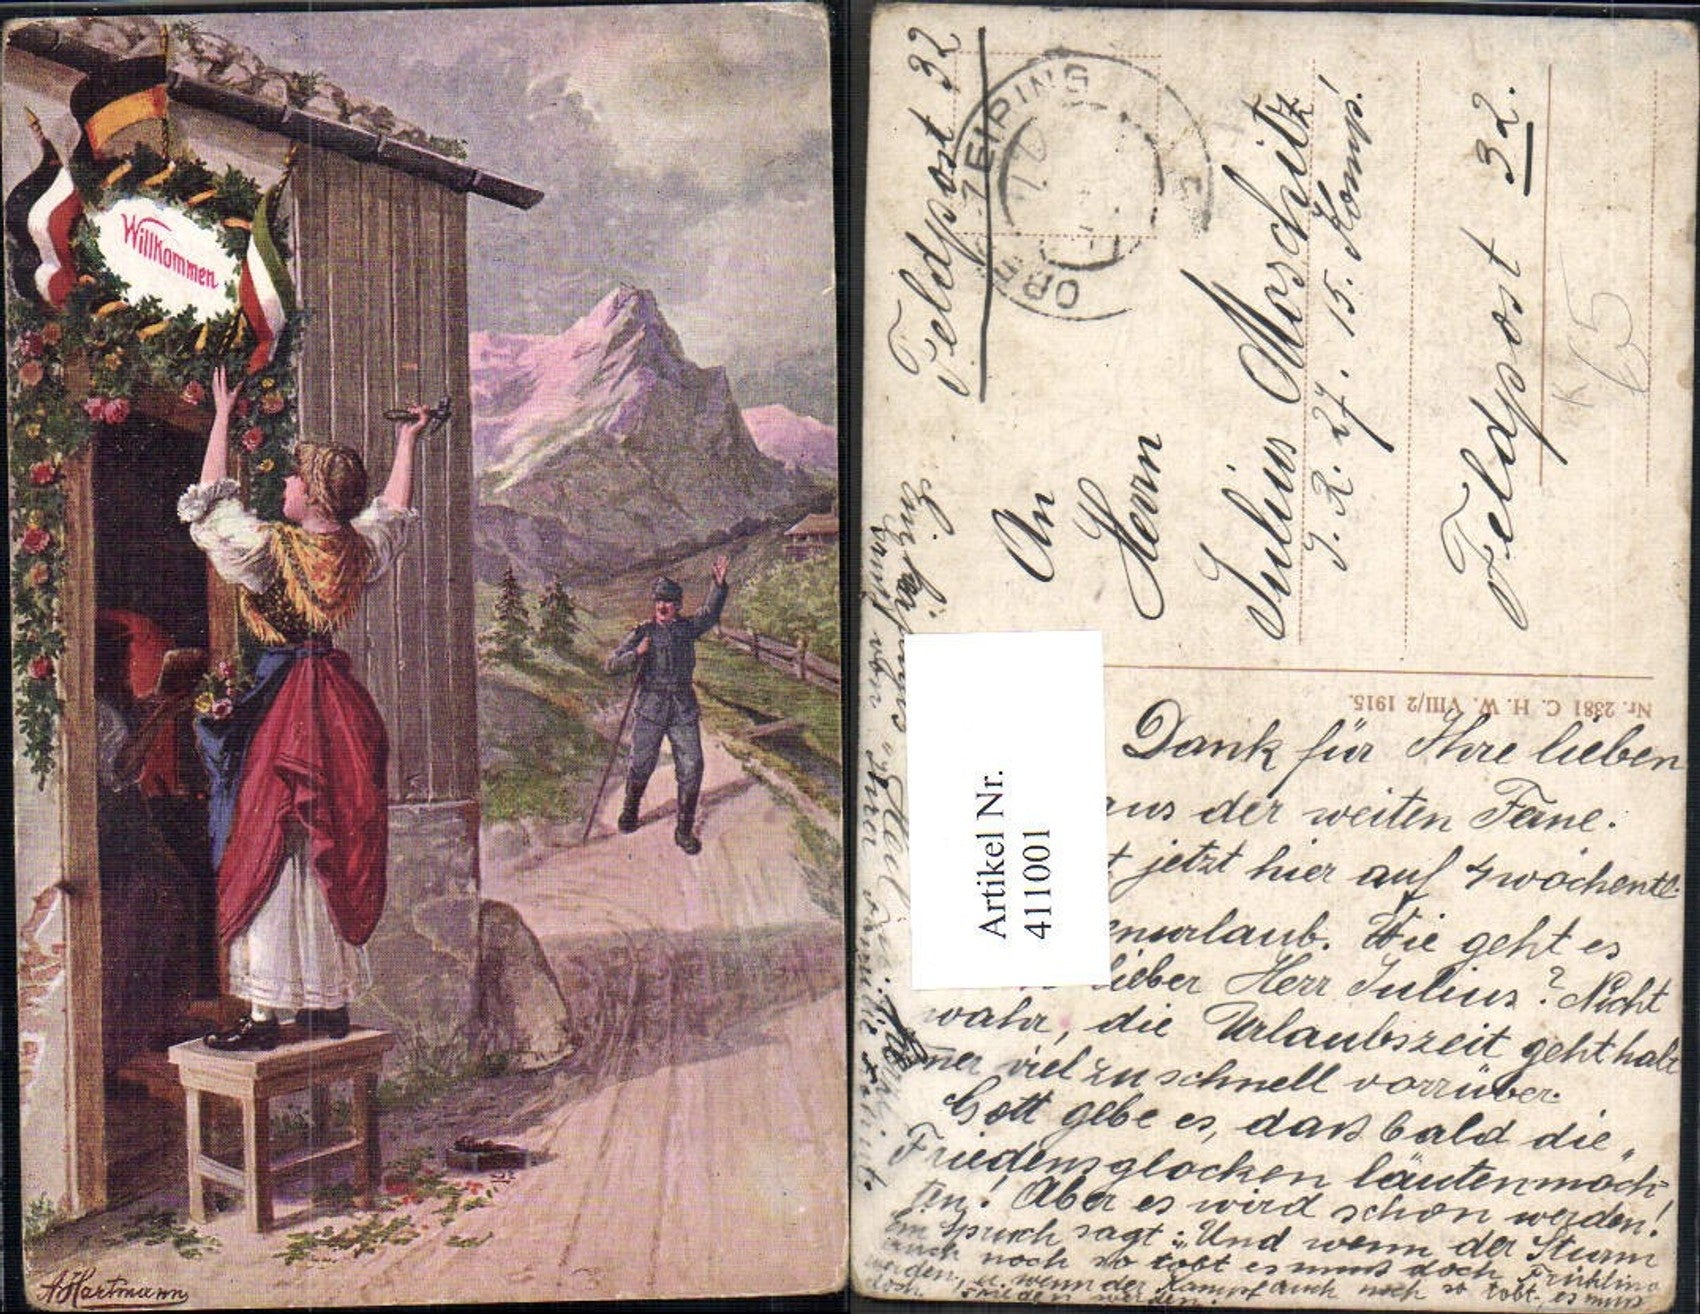 Willkommen
A. Hartmann
Feldpost 32
ZEIPING
An
Herrn
Julius Moschitz
J. R. 27. 15. Komp!
Feldpost 32.
K 65
Nr. 2381 C. H. W. VIII/2 1915.
Artikel Nr.
411001
Dank für Ihre lieben
aus der weiten Ferne.
t jetzt hier auf 4 wöchentl.
enurlaub. Wie geht es
lieber Herr Julius? Nicht
wahr, die Urlaubszeit geht halt
mer viel zu schnell vorrüber.
Gott gebe es, dass bald die
Friedensglocken läuten möch-
ten! Aber es wird schon werden!
Ein Spruch sagt: „Und wenn der Sturm
auch noch so tobt es muss doch Frühling
werden, u. wenn der Kampf auch noch so tobt - es muss
doch Frieden werden!